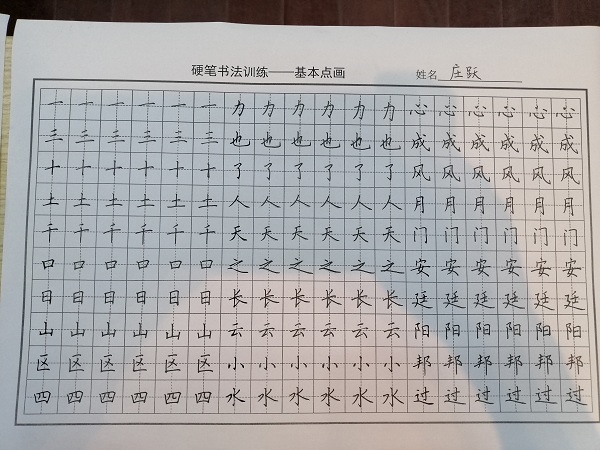 硬笔书法训练——基本点画 姓名 庄跃
一一一一一一力力力力力力心心心心心心
三三三三三三也也也也也也成成成成成成
十十十十十十了了了了了了风风风风风风
土土土土土土人人人人人人月月月月月月
千千千千千千天天天天天天门门门门门门
口口口口口口之之之之之之安安安安安安
日日日日日日长长长长长长廷廷廷廷廷廷
山山山山山山云云云云云云阳阳阳阳阳阳
区区区区区区小小小小小小邦邦邦邦邦邦
四四四四四四水水水水水水过过过过过过